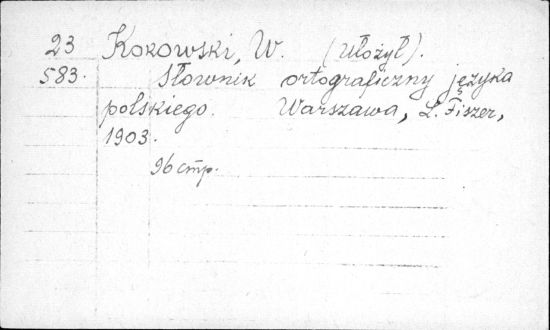 23 Kokowski, W. (Ułożył).
583. Słownik ortograficzny języka
polskiego. Warszawa, L. Fiszer,
1903.
96 стр.